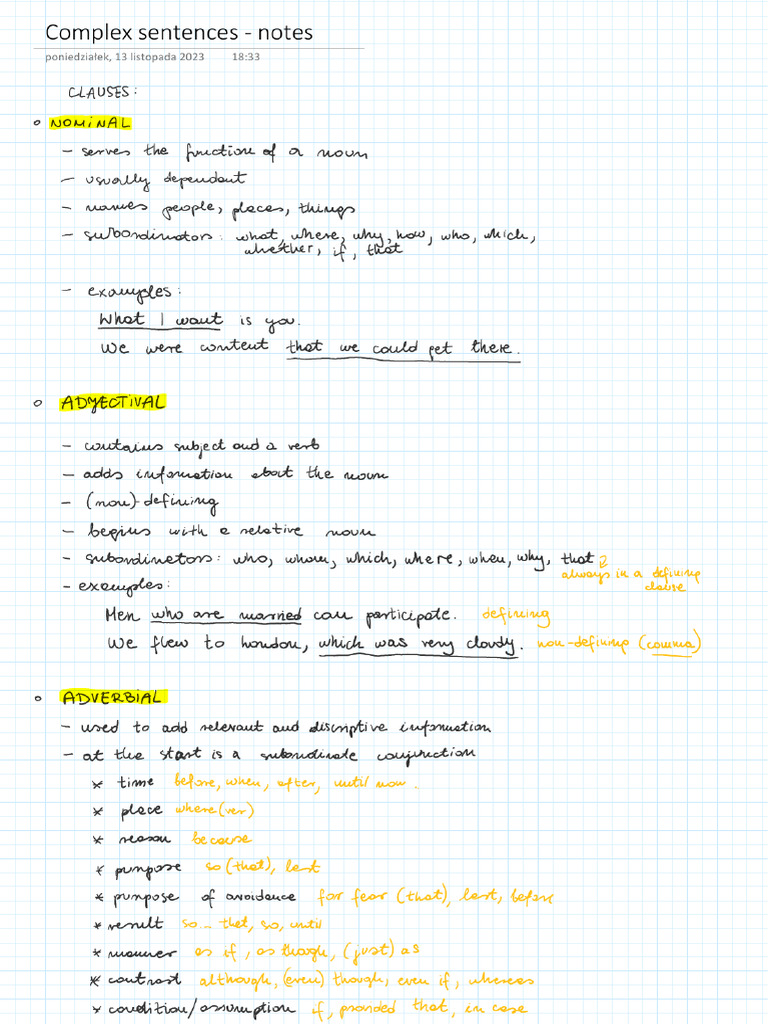 Complex sentences - notes
poniedziałek, 13 listopada 2023 18:33
CLAUSES:
NOMINAL
- serves the function of a noun
- usually dependent
- names people, places, things
- subordinators: what, where, why, how, who, which,
whether, if, that
- examples:
What I want is you.
We were content that we could get there.
ADJECTIVAL
- contains subject and a verb
- adds information about the noun
- (non)-defining
- begins with a relative noun
- subordinators: who, whom, which, where, when, why, that
always in a defining
clause
- examples:
Men who are married can participate. defining
We flew to London, which was very cloudy. non-defining (comma)
ADVERBIAL
- used to add relevant and discriptive information
- at the start is a subordinate conjunction
* time before, when, after, until now.
* place where(ver)
* reason because
* purpose so (that), lest
* purpose of avoidance for fear (that), lest, before
* result so... that, so, until
* manner as if, as though, (just) as
* contrast although, (even) though, even if, whereas
* condition/assumption if, provided that, in case